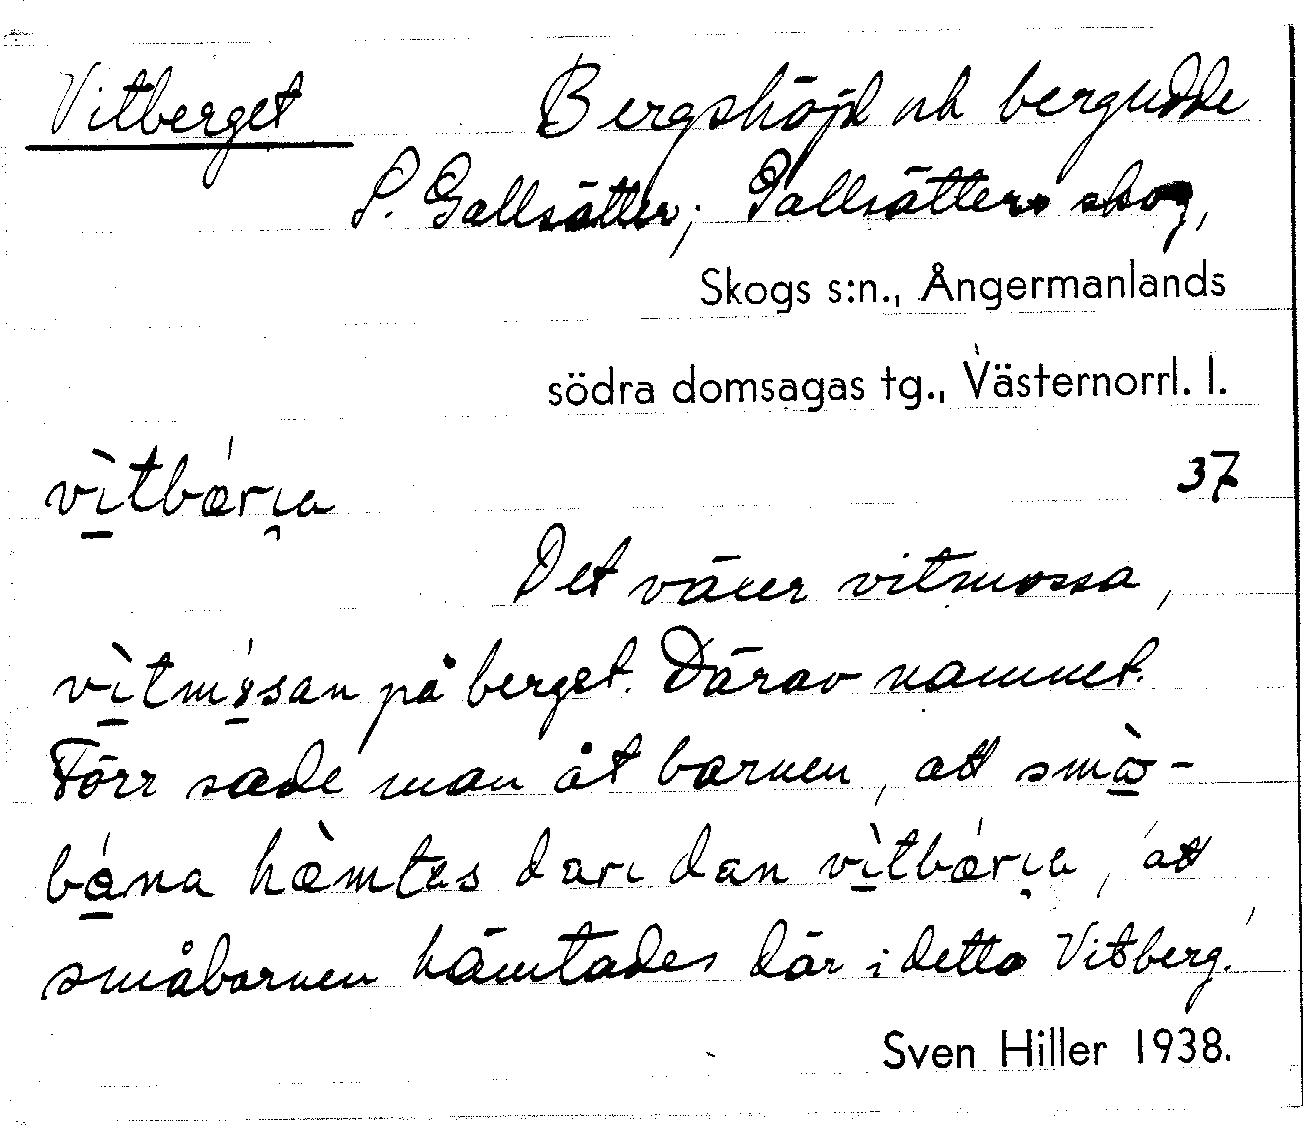 Vitberget Bergshöjd och bergudde
S. Gallsätter, Gallsätters skog,
Skogs s:n., Ångermanlands
södra domsagas tg., Västernorrl. l.
vìtbǽrɩa 37
Det växer vitmossa,
vìtmósan på berget. Därav namnet.
Förr sade man åt barnen, att småbána
hæ̀mtas dari dan vìtbǽrɩa, 'att
småbarnen hämtades där i detta Vitberg.'
Sven Hiller 1938.